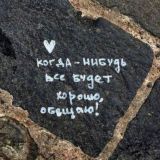 когда-нибудь
все будет
хорошо,
обещаю!